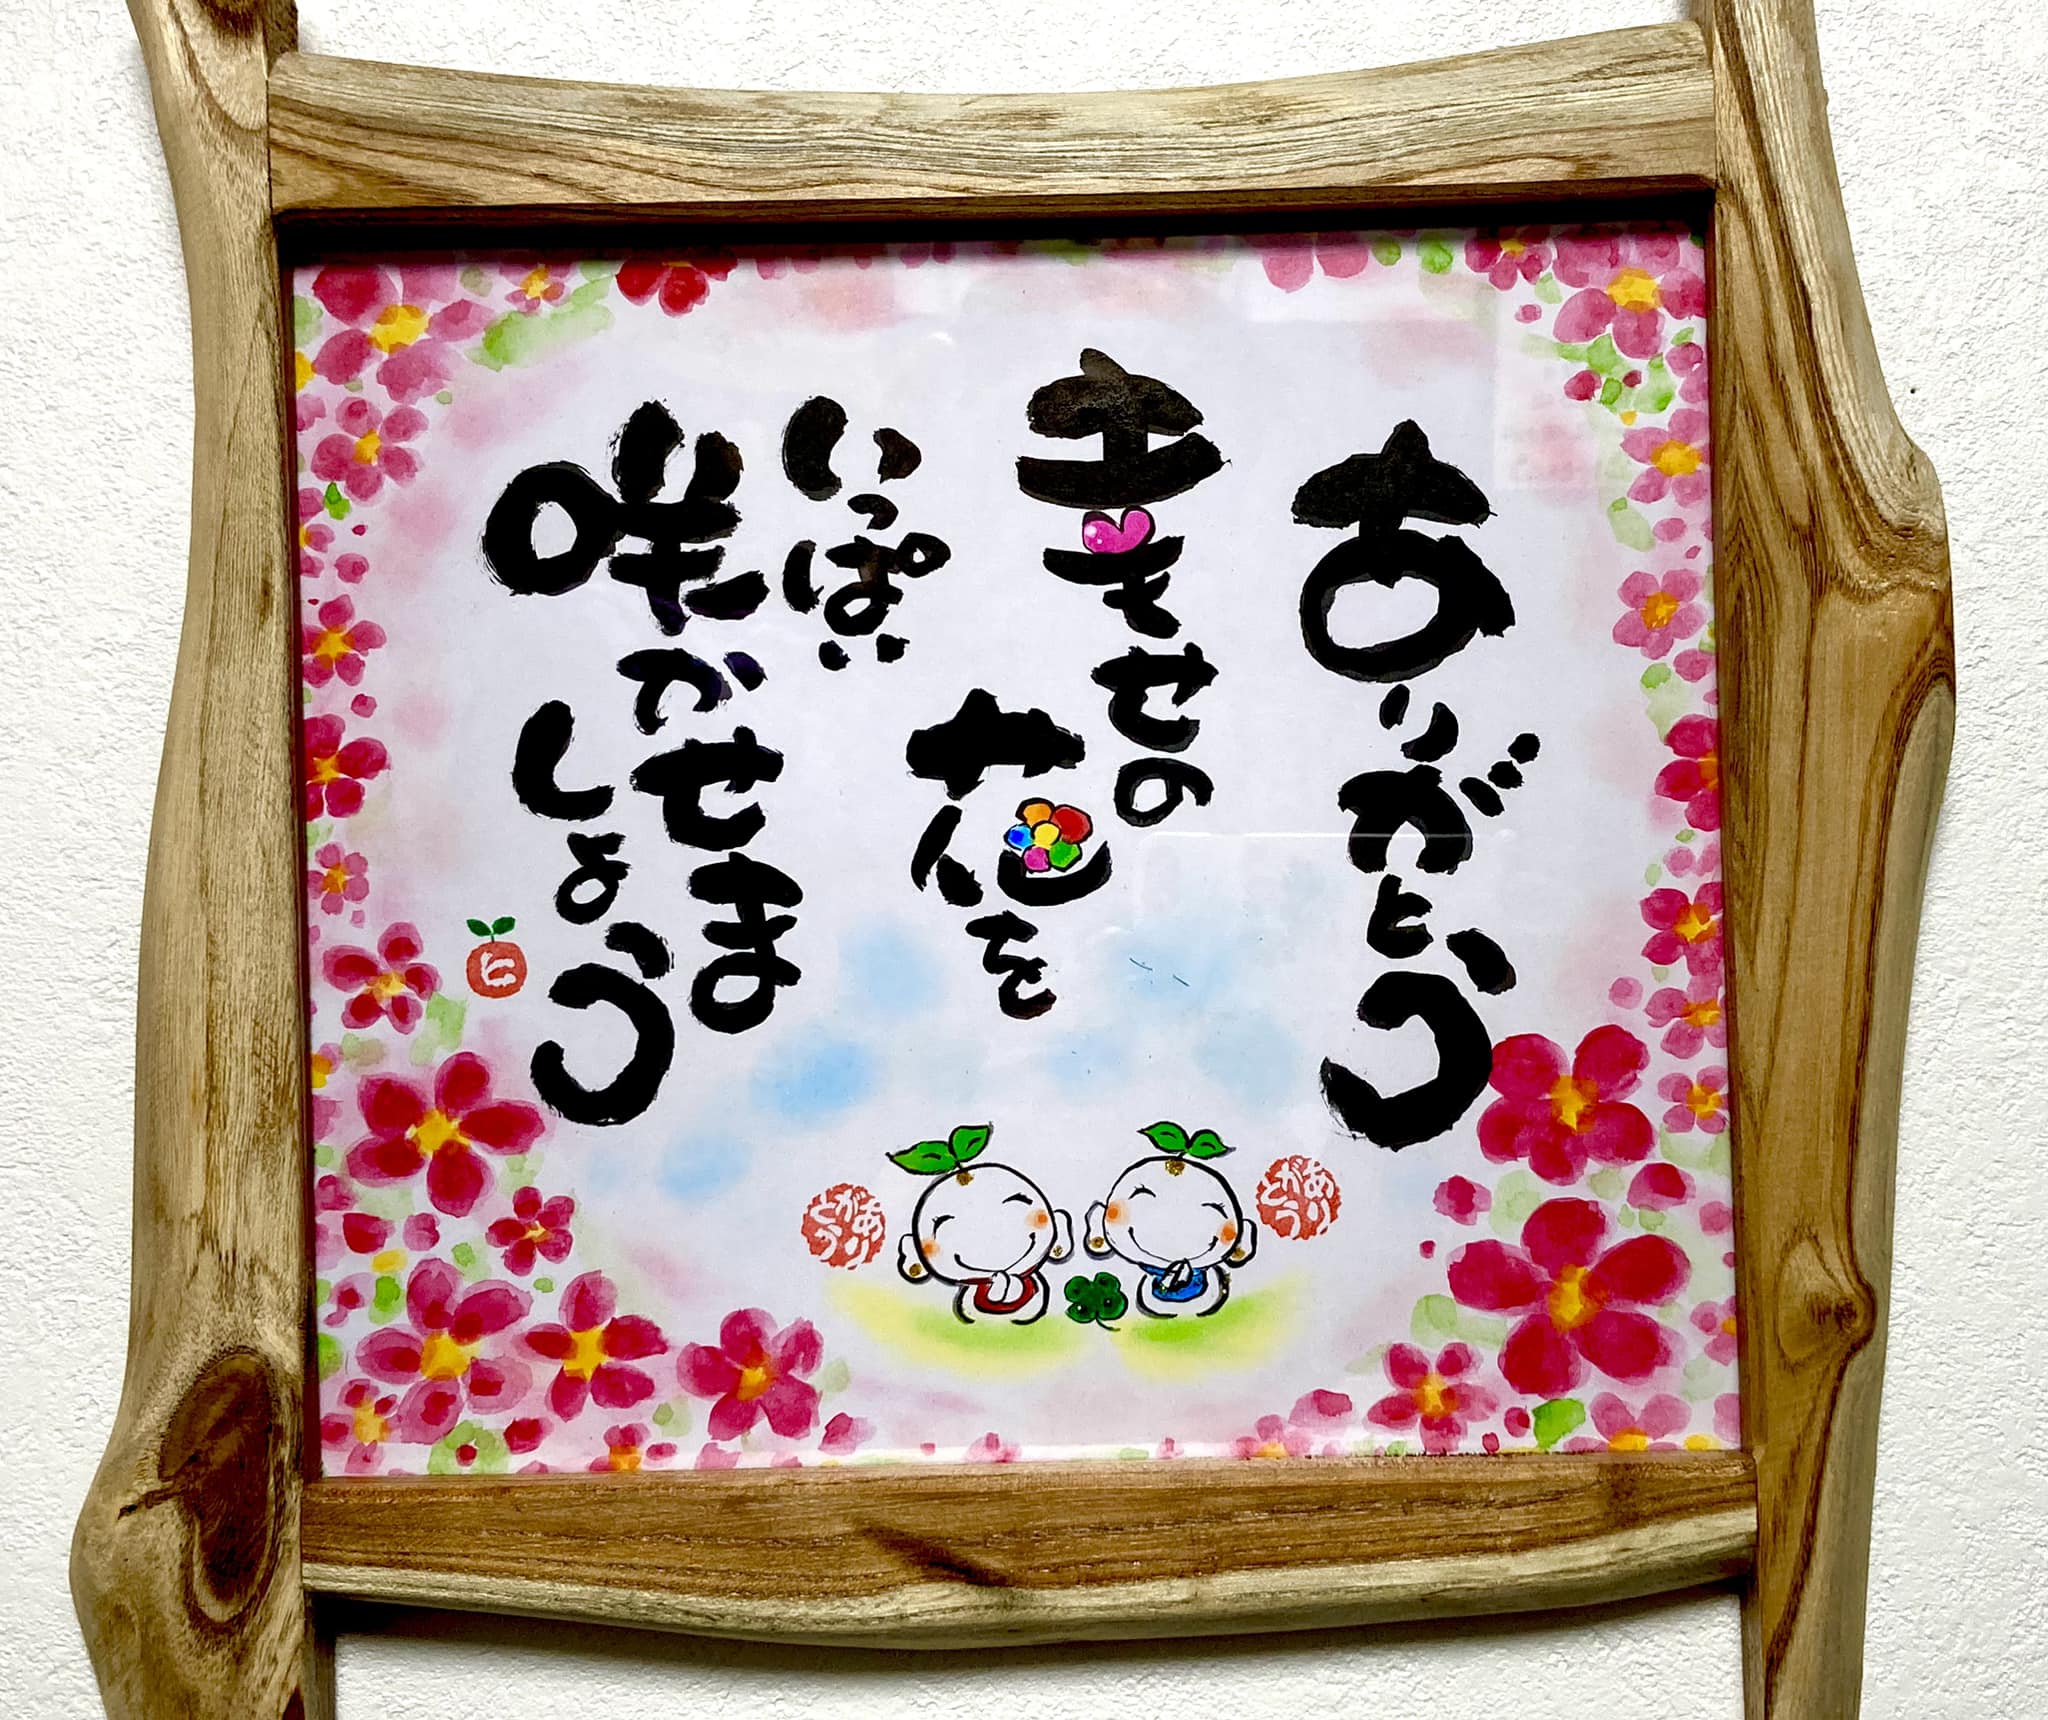 ありがとう
幸せの
花を
いっぱい
咲かせま
しょう
ありがとう
ありがとう